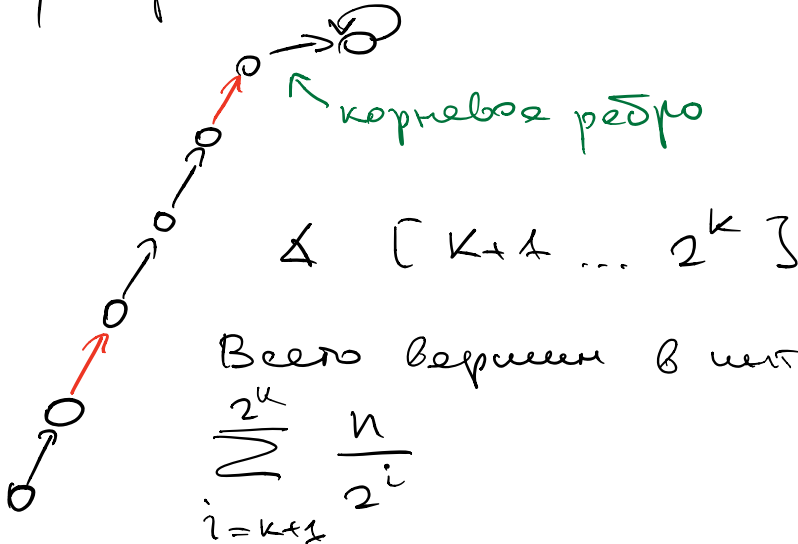 корневое ребро
∆ [ K+1 ... 2^k ]
Всего вершин в инт
2^k
∑ n / 2^i
i = k+1